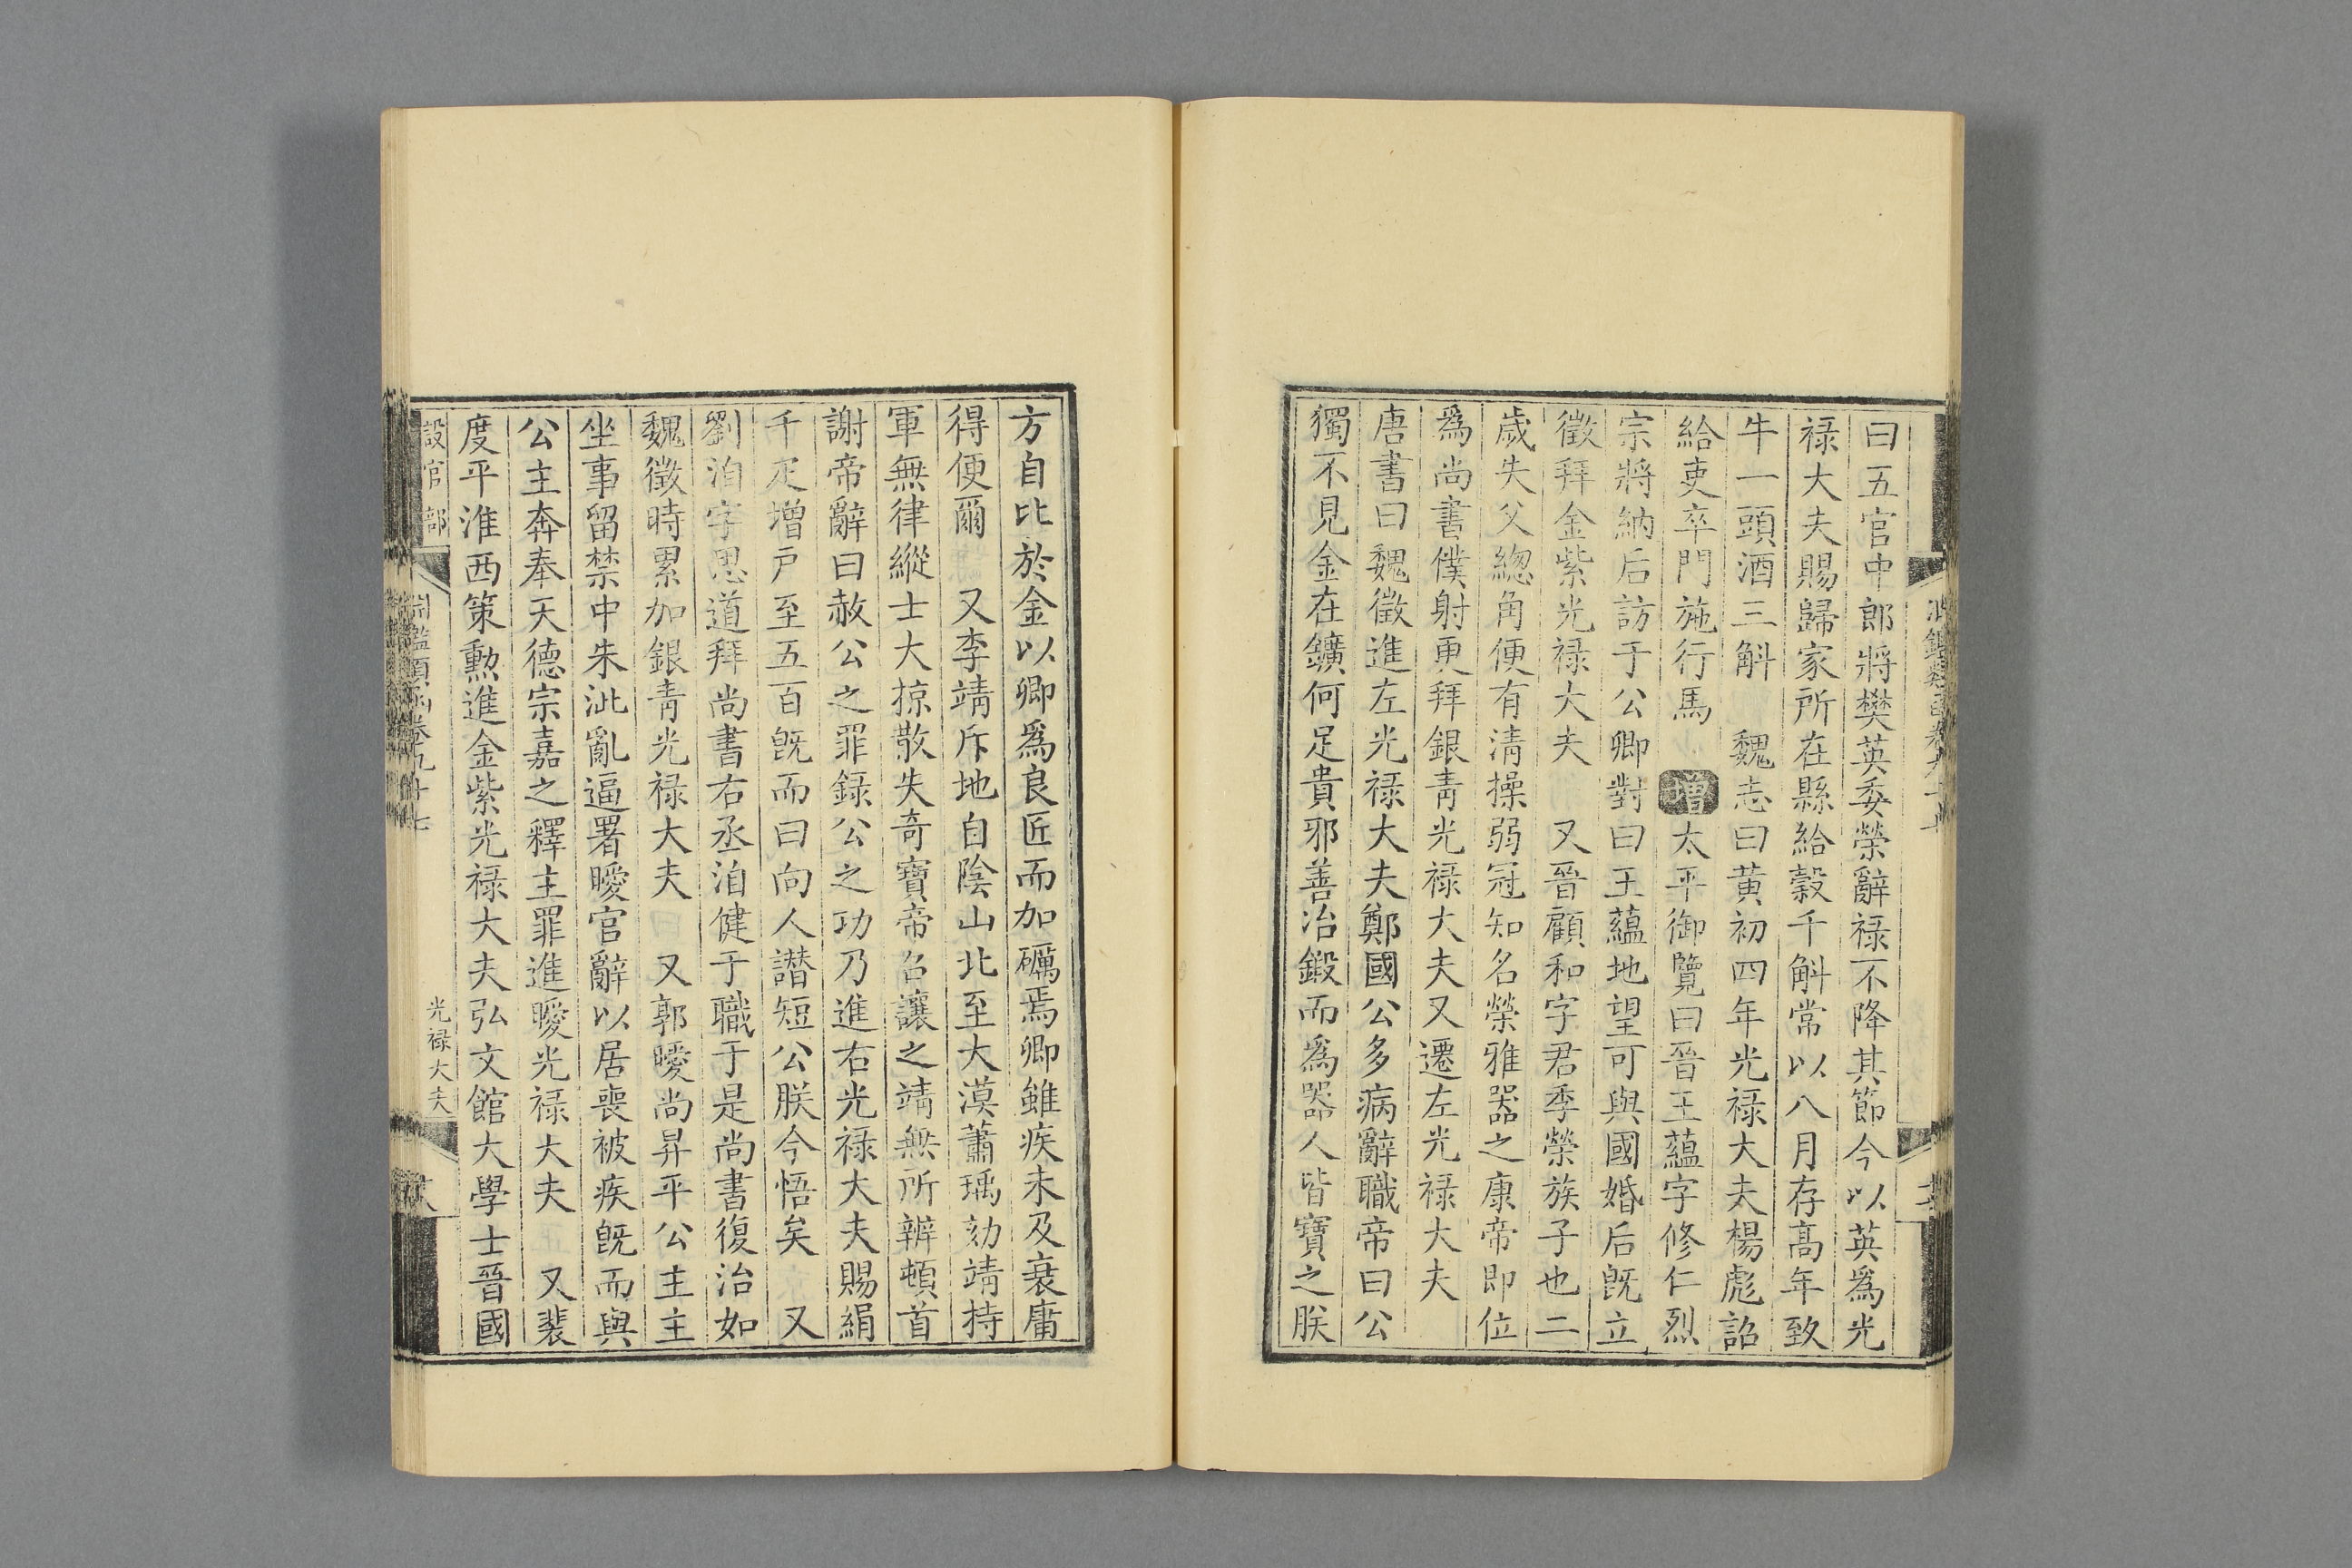 曰五官中郎將樊英委榮辭禄不降其節今以英爲光
禄大夫賜歸家所在縣給穀千斛常以八月存高年致
牛一頭酒三斛 魏志曰黄初四年光禄大夫楊彪詔
給吏卒門施行馬 增 太平御覽曰晉王藴字修仁烈
宗將納后訪于公卿對曰王藴地望可與國婚后既立
徵拜金紫光禄大夫 又晉顧和字君季榮族子也二
歲失父總角便有清操弱冠知名榮雅器之康帝即位
爲尚書僕射更拜銀青光禄大夫又遷左光禄大夫
唐書曰魏徵進左光禄大夫鄭國公多病辭職帝曰公
獨不見金在鑛何足貴邪善冶鍛而爲器人皆寶之朕
方自比於金以卿爲良匠而加礪焉卿雖疾未及衰庸
得便爾 又李靖斥地自陰山北至大漠蕭瑀劾靖持
軍無律縱士大掠散失奇寶帝召讓之靖無所辨頓首
謝帝辭曰赦公之罪録公之功乃進右光禄大夫賜絹
千疋增戸至五百既而曰向人譖短公朕今悟矣 又
劉洎字思道拜尚書右丞洎健于職于是尚書復治如
魏徵時累加銀青光禄大夫 又郭曖尚昇平公主主
坐事留禁中朱泚亂逼署曖官辭以居喪被疾既而與
公主奔奉天德宗嘉之釋主罪進曖光禄大夫 又裴
度平淮西策勲進金紫光禄大夫弘文館大學士晉國
設官部
淵鑑類函卷九十七
光禄大夫